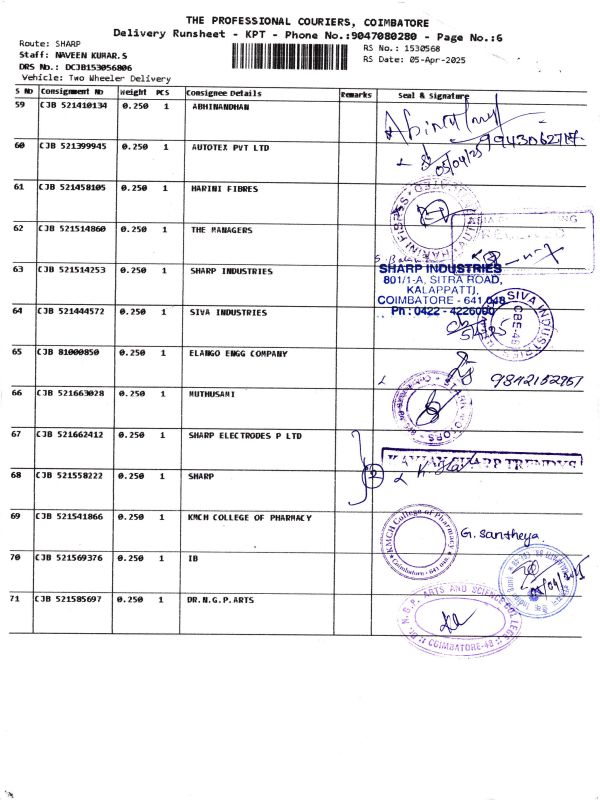 THE PROFESSIONAL COURIERS, COIMBATORE
Delivery Runsheet - KPT - Phone No.:9047080280 - Page No.:6
Route: SHARP
Staff: NAVEEN KUMAR.S
DRS No.: DCJB153056806
Vehicle: Two Wheeler Delivery
RS No.: 1530568
RS Date: 05-Apr-2025
S No Consignment No Weight PCS Consignee Details Remarks Seal & Signature
59 CJB 521410134 0.250 1 ABHINANDHAN
9943062717
60 CJB 521399945 0.250 1 AUTOTEX PVT LTD
05/04/25
61 CJB 521458105 0.250 1 HARINI FIBRES
62 CJB 521514860 0.250 1 THE MANAGERS
63 CJB 521514253 0.250 1 SHARP INDUSTRIES
SHARP INDUSTRIES
801/1-A, SITRA ROAD,
KALAPPATTI,
COIMBATORE - 641 048
Pn : 0422 - 4226000
64 CJB 521444572 0.250 1 SIVA INDUSTRIES
SIVA INDUSTRIES
65 CJB 81000850 0.250 1 ELANGO ENGG COMPANY
9842152957
66 CJB 521663028 0.250 1 MUTHUSAMI
67 CJB 521662412 0.250 1 SHARP ELECTRODES P LTD
SHARP TRENDYS
68 CJB 521558222 0.250 1 SHARP
2
69 CJB 521541866 0.250 1 KMCH COLLEGE OF PHARMACY
KMCH College of Pharmacy
Coimbatore - 641 048
G. Santheya.
70 CJB 521569376 0.250 1 IB
71 CJB 521585697 0.250 1 DR.N.G.P.ARTS
DR. N.G.P. ARTS AND SCIENCE COLLEGE
COIMBATORE-48